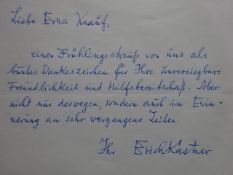 Liebe Erna Knauf,
einen Frühlingsstrauß von uns als
buntes Dankeszeichen für Ihre unversiegbare
Freundlichkeit und Hilfsbereitschaft. Aber
nicht nur deswegen, sondern auch in Erin-
nerung an sehr vergangene Zeiten.
Ihr Erich Kästner